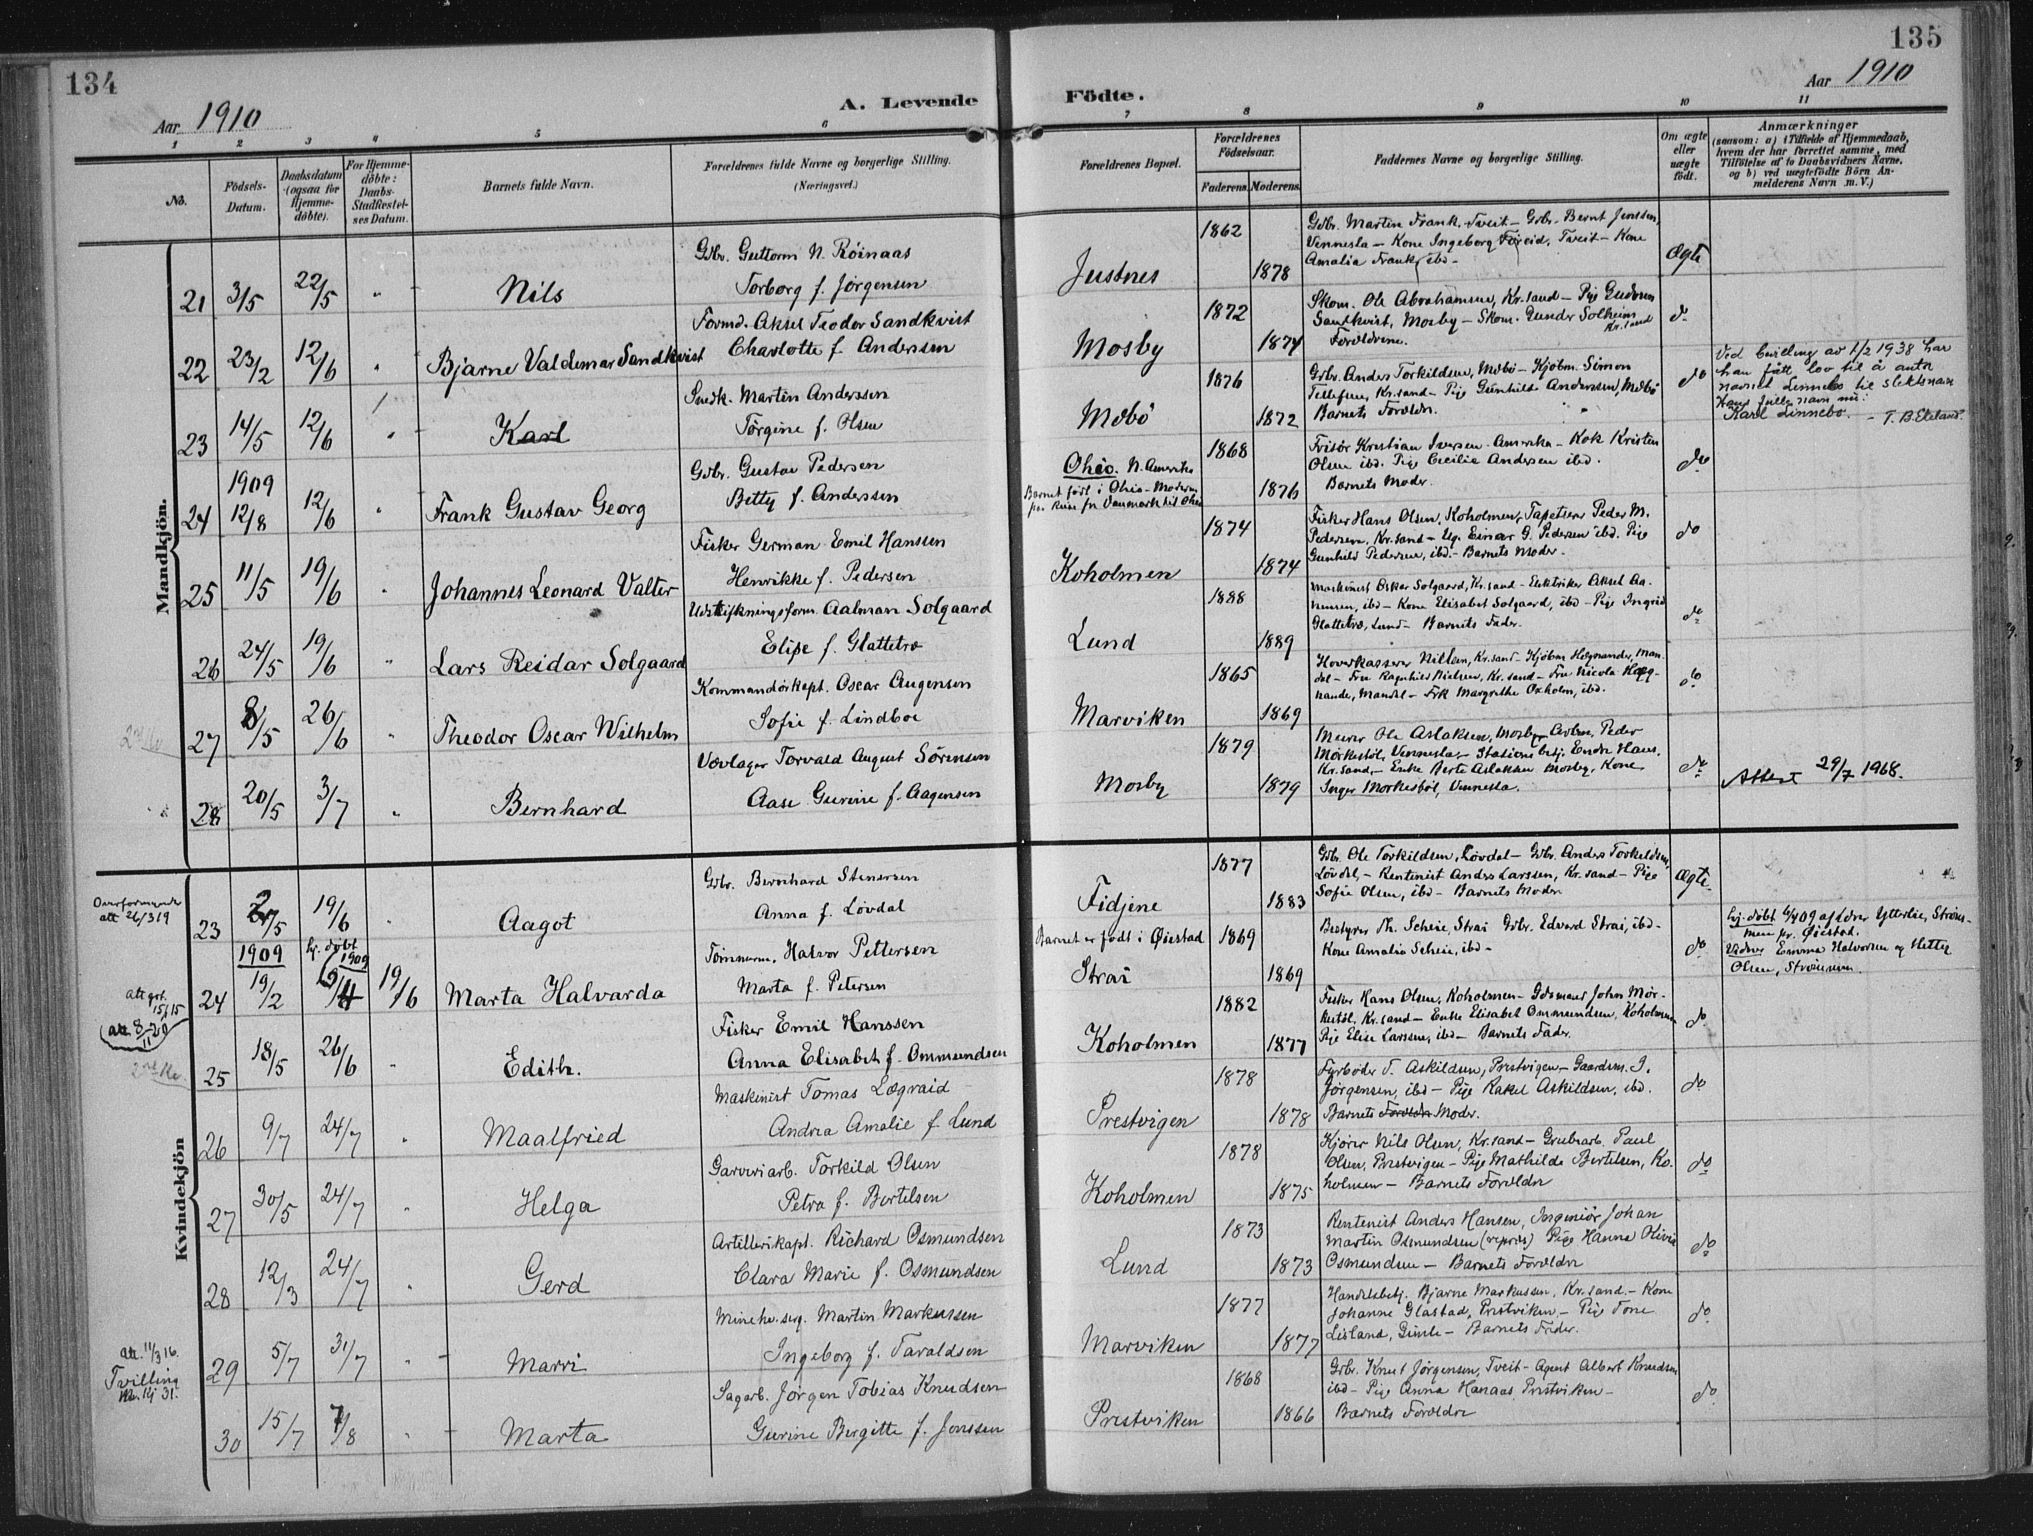 134
135
Aar 1910
A. Levende
Födte.
Aar 1910
1 2 3 4 5 6 7 8 9 10 11
No.
Födsels-Datum.
Daabsdatum (ogsaa for Hjemme-döbte).
For Hjemme-döbte: Daabs-Stadfæstel-ses Datum.
Barnets fulde Navn.
Forældrenes fulde Navne og borgerlige Stilling.
(Næringsvei.)
Forældrenes Bopæl.
Forældrenes Födselsaar.
Faderens. Moderens.
Faddernes Navne og borgerlige Stilling.
Om ægte eller uægte födt.
Anmærkninger
(saasom: a) i Tilfælde af Hjemmedaab, hvem der har forrettet samme, med Tilföielse af to Daabsvidners Navne, og b) ved uægtefödte Börn An-melderens Navn m. V.)
Mandkjön.
21 3/5 22/5 " Nils
Gbr. Guttorm N. Röinaas
Torborg f. Jörgensen
Justnes 1862 1878
Gbr. Martin Frank, Tveit – Gbr. Bernt Jenssen,
Vennesla – Kone Ingeborg Tveid, Tveit – Kone
Amalia Frank, ibd –
Ægte
22 23/2 12/6 " Bjarne Valdemar Sandkvist
Formd. Aksel Teodor Sandkvist
Charlotte f. Anderssen
Mosby 1872 1874
Skom. Ole Abrahamsen, Kr.sand – Pige Gudrun
Sandkvist, Mosby – Skom. Gunder Solheim
Kr.sand
Forældrene.
do
23 14/5 12/6 " Karl
Snedk. Martin Anderssen
Törgine f. Olsen
Mæbö 1876 1872
Gbr. Anders Torkildsen, Mæbö – Kjöbm. Simon
Tellefsen, Kr.sand – Pige Gunhilde Anderssen, Mæbö
Barnets Forældr.
do
Ved bevilling av 1/2 1938 har
han fått lov til å anta
navnet Linnebo til slektsnavn
Hans fulle navn nu:
Karl Linnebo. – T. B. Ekeland.
24 1909 12/8 12/6 " Frank Gustav Georg
Gbr. Gustav Pedersen
Betty f. Anderssen
Ohio. N. Amerika
Barnet födt i Ohio – Moderen
paa Reise fra Danmark til Ohio
1868 1876
Frisör Kristian Iversen. Amerika – Kok Kristen
Olsen ibd. Pige Cecilie Andersen ibd.
Barnets Moder.
do
25 11/5 19/6 " Johannes Leonard Valter
Fisker German Emil Hanssen
Henrikke f. Pedersen
Koholmen 1874 1874
Fisker Hans Olsen, Koholmen, Tapetserer Peder M.
Pedersen, Kr.sand – Ug. Einar G. Pedersen ibd. Pige
Gunhild Pedersen, ibd. – Barnets Moder.
do
26 24/5 19/6 " Lars Reidar Solgaard
Udskifkningsform. Aalman Solgaard
Elise f. Glattetre
Lund 1888 1889
Maskinist Oskar Solgaard, Kr.sand – Elektriker Aksel Aa-
nensen, ibd – Kone Elisabet Solgaard, ibd – Pige Ingrid
Glattetre, Lund – Barnets Fader.
do
27 8/5 26/6 " Theodor Oscar Wilhelm
Kommandörkapt. Oscar Augensen
Sofie f. Lindboe
Marviken 1865 1869
Hovedkasserer Nilsen, Kr.sand – Kjöbm Hægnander, Man-
dal – Fru Ragnhild Nielsen, Kr.sand – Fru Nicola Hæg-
nande, Mandal – Frk Margrethe Oxholm, ibd.
do
28 20/5 3/7 " Bernhard
Vævlager Torvald August Sörensen
Aase Gurine f. Aagensen
Mosby 1879 1879
Murer Ole Aslaksen, Mosby – Peder
Mörkestöl, Vennesla – Stations betj. Endre Haus.
Kr.sand, – Enke Berte Aslaksen Mosby, Kone
Inger Mörkestöl, Vennesla.
do
Attest 29/7 1968.
Kvindekjön
att 26/3 19
23 2/5 19/6 " Aagot
Gbr. Bernhard Stenersen
Anna f. Lövdal
Fidjene 1877 1883
Gbr. Ole Torkildsen, Lövdal – Gbr. Anders Torkeldsen,
Lövdal, – Rentenist Anders Larssen, Kr.sand – Pige
Sofie Olsen, ibd – Barnets Moder
Ægte.
24 1909 19/2 hj. döbt 1909 19/6 Marta Halvarda
Tömmerm. Halvor Pettersen
Marta f. Petersen
Barnet er födt i Öiestad
Strai 1869 1869
Bestyrer Th. Scheie, Strai Gbr. Edvard Strai, ibd –
Kone Amalia Scheie, ibd –
do
hj. döbt 09 af Lærer Ytterlie, Ströms-
men pr. Öiestad.
Vidner Emma Halvorsen og Mette
Olsen, Strömmen.
Att got. 15/15
att. 8/11 20
25 18/5 26/6 " Edith.
Fisker Emil Hanssen
Anna Elisabet f. Ommundsen
Koholmen 1882 1877
Fisker Hans Olsen, Koholmen – Gdsmand John Mör-
kestöl, Kr.sand – Enke Elisabet Ommundsen, Koholmen
Pige Elise Larssen, ibd – Barnets Fader.
do
26 9/7 24/7 " Maalfried
Maskinist Tomas Lægraid
Andrea Amalie f. Lund
Prestvigen 1878 1878
Fyrböder T. Askildsen, Prestvigen – Gaardsm. J.
Jörgensen, ibd – Pige Rakel Askildsen, ibd.
Barnets Forældr Moder.
do
27 30/5 24/7 " Helga
Garveriarb. Torkild Olsen
Petra f. Bertelsen
Koholmen 1878 1875
Kjörer Nils Olsen, Kr.sand – Grubearb. Paul
Olsen, Prestvigen – Pige Mathilde Bertelsen, Ko-
holmen – Barnets Forældre
do
28 12/3 24/7 " Gerd
Artillerikapt. Richard Osmundsen
Clara Marie f. Osmundsen
Lund 1873 1873
Rentenist Anders Hansen, Ingeniör Johan
Martin Osmundsen (repræs) Pige Hanna Olivia
Osmundsen – Barnets Forældre
do
29 5/7 31/7 " Marri
Mineke. serg. Martin Markussen
Ingeborg f. Taraldsen
Marviken 1877 1877
Handelsbetj. Bjarne Markussen, Kr.sand. – Kone
Johanne Glastad, Prestviken – Pige Tone
Lisland, Gimle – Barnets Fader.
do
att. 11/3 16.
Tvilling
31.
30 15/7 7/8 " Marta
Sagarb. Jörgen Tobias Knudsen
Gurine Bergitte f. Jonssen
Prestviken 1868 1866
Gbr. Knut Jörgensen, Tveit – Agent Albert Knudsen
ibd – Pige Anna Hanaas Prestviken –
Barnets Forældre
do